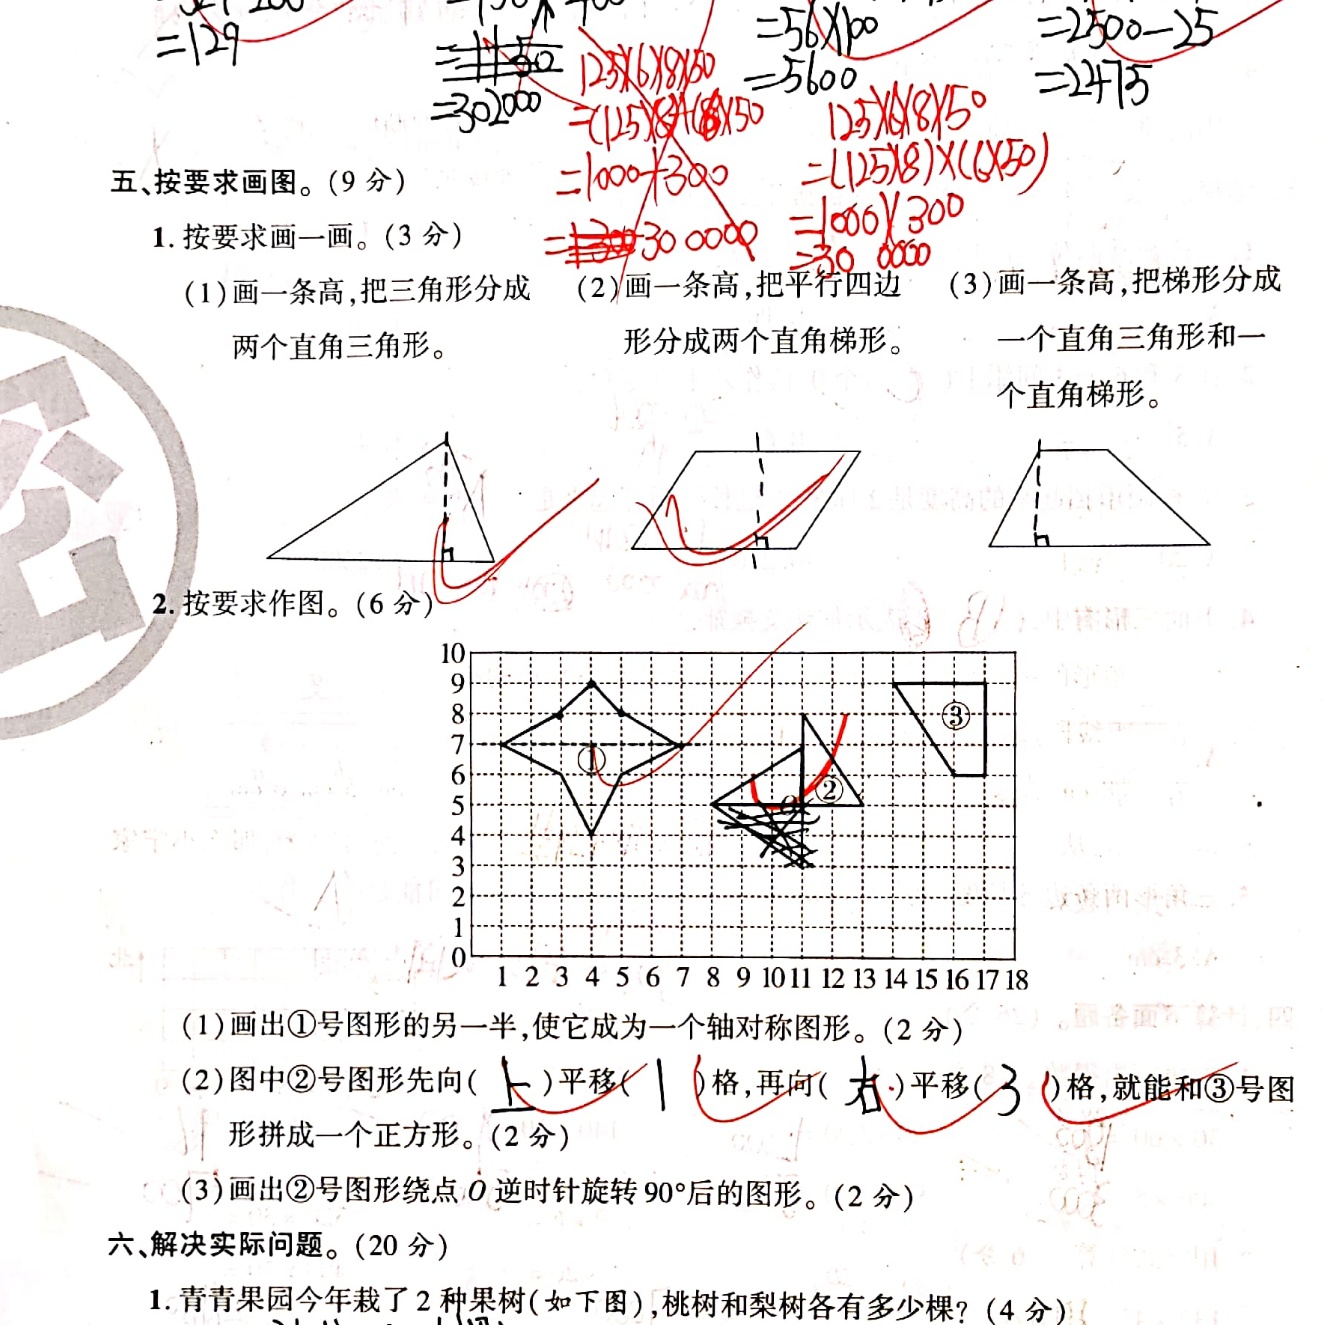 =129
=302000
=56×100
=5600
=2500-25
=2475
125×6×8×50
=(125×8)+(6×50
=1000+300
=1300 300000
125×6×8×50
=(125×8)×(6×50)
=1000×300
=300000
五、按要求画图。(9分)
1.按要求画一画。(3分)
(1)画一条高,把三角形分成两个直角三角形。
(2)画一条高,把平行四边形分成两个直角梯形。
(3)画一条高,把梯形分成一个直角三角形和一个直角梯形。
2.按要求作图。(6分)
10
9
8
7
6
5
4
3
2
1
0
① ② ③
O
1 2 3 4 5 6 7 8 9 10 11 12 13 14 15 16 17 18
(1)画出①号图形的另一半,使它成为一个轴对称图形。(2分)
(2)图中②号图形先向(上)平移(1)格,再向(右)平移(3)格,就能和③号图
形拼成一个正方形。(2分)
(3)画出②号图形绕点O逆时针旋转90°后的图形。(2分)
六、解决实际问题。(20分)
1.青青果园今年栽了2种果树(如下图),桃树和梨树各有多少棵?(4分)